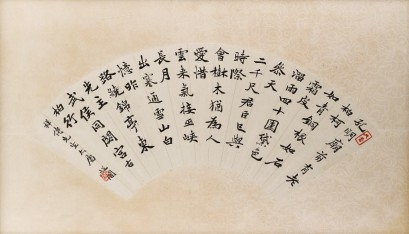 孔明廟前有老
柏柯
如青銅根如石
霜皮
溜雨四十圍黛色
參天
二千尺君臣已與
時際
會樹木猶為人
愛惜
雲來氣接巫峽
長月
出寒通雪山白
憶昨
路繞錦亭東
先主
武侯同閟宮古
柏行
先生